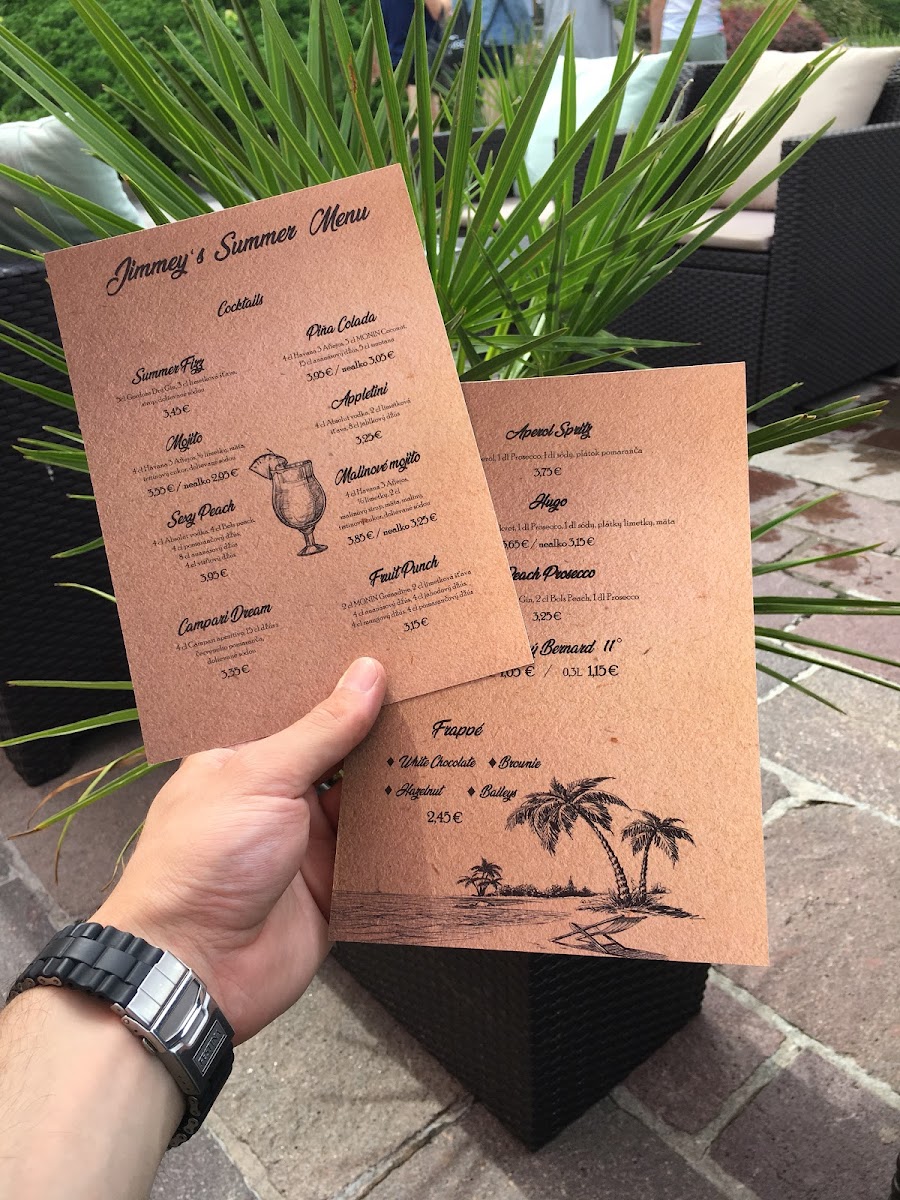 Jimmey's Summer Menu
Cocktails
Summer Fizz
3cl Gordons Dry Gin, 3 cl limetková šťava,
sirup, dolievané sodou
3,45 €
Mojito
4 cl Havana 3 Añejos, ½ limetky, mäta,
trstinový cukor, dolievané sodou
3,55 € / nealko 2,95 €
Sexy Peach
4 cl Absolut vodka, 4 cl Bols peach,
4 cl pomarančový džús
8 cl ananásový džús
4 cl višňový džús
3,95 €
Campari Dream
4 cl Campari aperitivo, 15 cl džús z
červeného pomaranča,
dolievané sodou
3,35 €
Piña Colada
4 cl Havana 3 Añejos, 3 cl MONIN Coconut,
15 cl ananásový džús, 3 cl smotana
3,95 € / nealko 3,05 €
Appletini
4 cl Absolut vodka, 2 cl limetková
šťava, 8 cl jablkový džús
3,25 €
Malinové mojito
4 cl Havana 3 Añejos,
½ limetky, 2 cl
malinový sirup, mäta, maliny,
trstinový cukor, dolievané sodou
3,85 € / nealko 3,25 €
Fruit Punch
2 cl MONIN Grenadine, 2 cl limetková šťava
4 cl ananásový džús, 4 cl jahodový džús,
4 cl mangový džús, 4 cl pomarančový džús
3,15 €
Aperol Spritz
1 dl Prosecco, 1 dl sóda, plátok pomaranča
3,75 €
Hugo
1 dl Prosecco, 1 dl sódy, plátky limetky, mäta
/ nealko 3,15 €
Peach Prosecco
Gin, 2 cl Bols Peach, 1 dl Prosecco
3,25 €
Bernard 11°
€ / 0,3L 1,15 €
Frappé
♦ White Chocolate ♦ Brownie
♦ Hazelnut ♦ Baileys
2,45 €